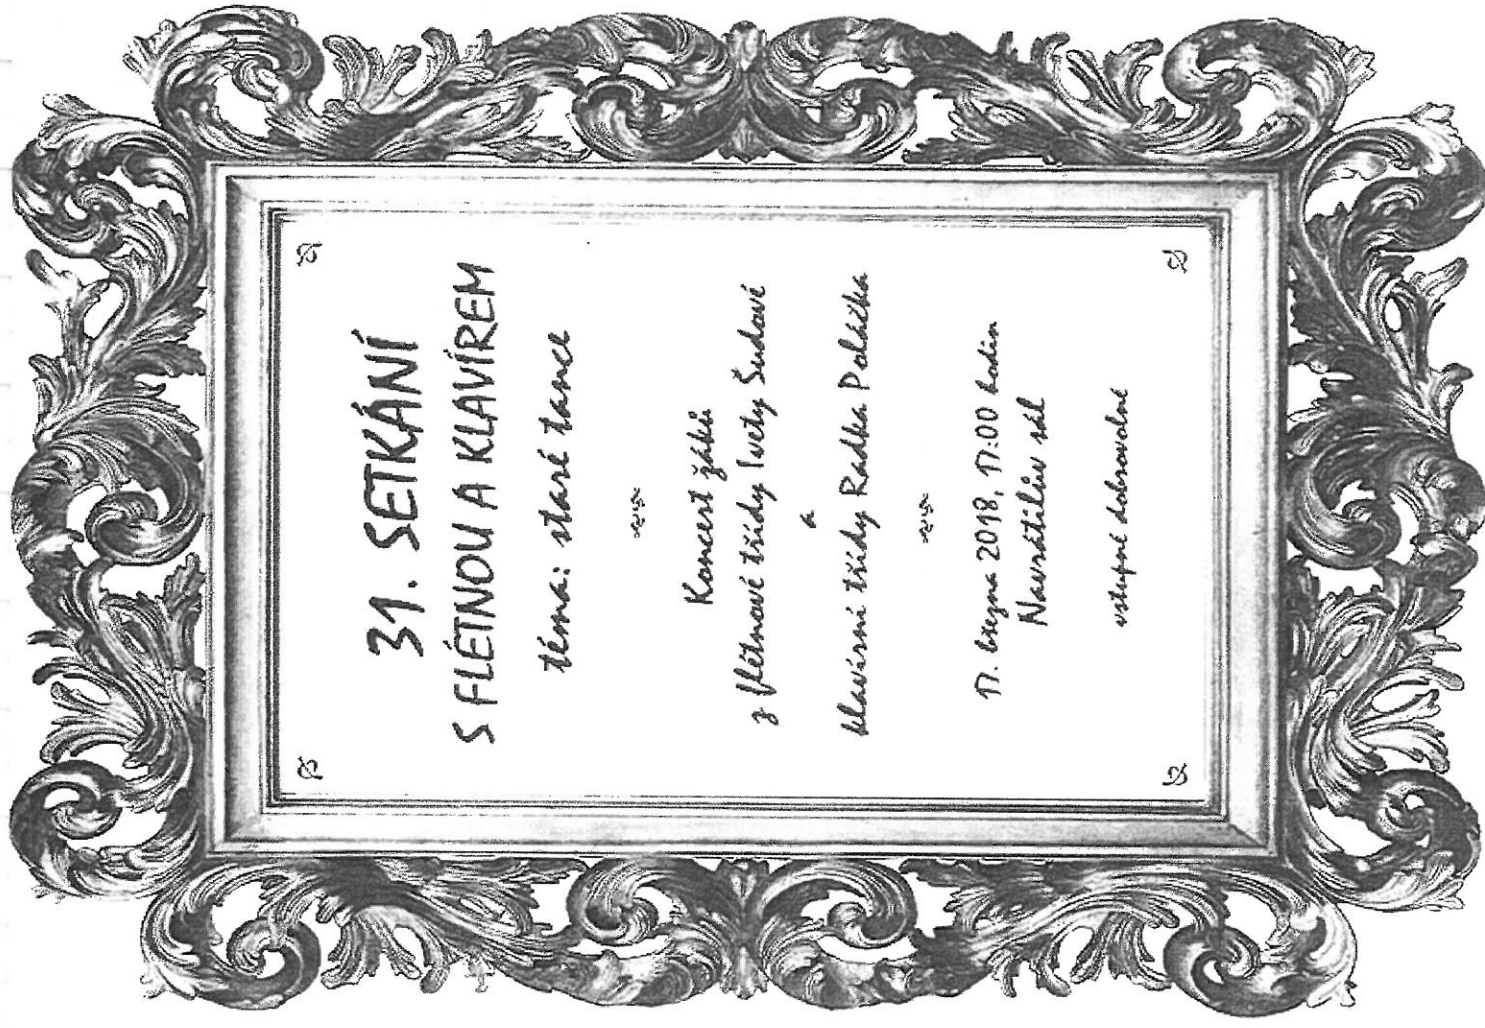 31. SETKÁNÍ
S FLÉTNOU A KLAVÍREM
téma: staré tance
Koncert žáků
z flétnové třídy Ivety Šudové
a
klavírní třídy Radka Poláčka
17. března 2018, 17:00 hodin
Navrátilův sál
vstupné dobrovolné